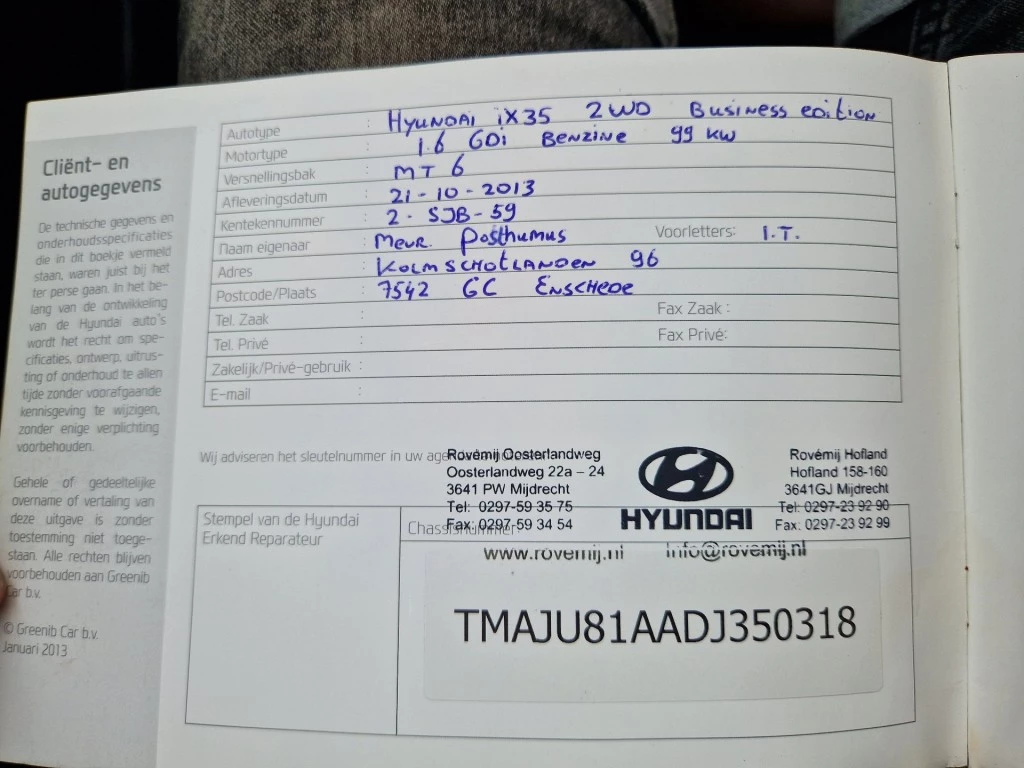 Cliënt- en
autogegevens
De technische gegevens en
onderhoudsspecificaties
die in dit boekje vermeld
staan, waren juist bij het
ter perse gaan. In het be-
lang van de ontwikkeling
van de Hyundai auto's
wordt het recht om spe-
cificaties, ontwerp, uitrus-
ting of onderhoud te allen
tijde zonder voorafgaande
kennisgeving te wijzigen,
zonder enige verplichting
voorbehouden.
Gehele of gedeeltelijke
overname of vertaling van
deze uitgave is zonder
toestemming niet toege-
staan. Alle rechten blijven
voorbehouden aan Greenib
Car b.v.
© Greenib Car b.v.
Januari 2013
Autotype : Hyundai iX35 2WD Business edition
Motortype : 1.6 GDi Benzine 99 kW
Versnellingsbak : MT 6
Afleveringsdatum : 21-10-2013
Kentekennummer : 2-SJB-59
Naam eigenaar : Mevr. Posthumus Voorletters: I.T.
Adres : Kolmschotlanden 96
Postcode/Plaats : 7542 GC Enschede
Tel. Zaak : Fax Zaak :
Tel. Privé : Fax Privé:
Zakelijk/Privé-gebruik :
E-mail :
Wij adviseren het sleutelnummer in uw
Rovémij Oosterlandweg
Oosterlandweg 22a – 24
3641 PW Mijdrecht
Tel: 0297-59 35 75
Fax: 0297-59 34 54
HYUNDAI
Rovémij Hofland
Hofland 158-160
3641GJ Mijdrecht
Tel: 0297-23 92 90
Fax: 0297-23 92 99
www.rovemij.nl info@rovemij.nl
Stempel van de Hyundai
Erkend Reparateur
Chassisnummer
TMAJU81AADJ350318